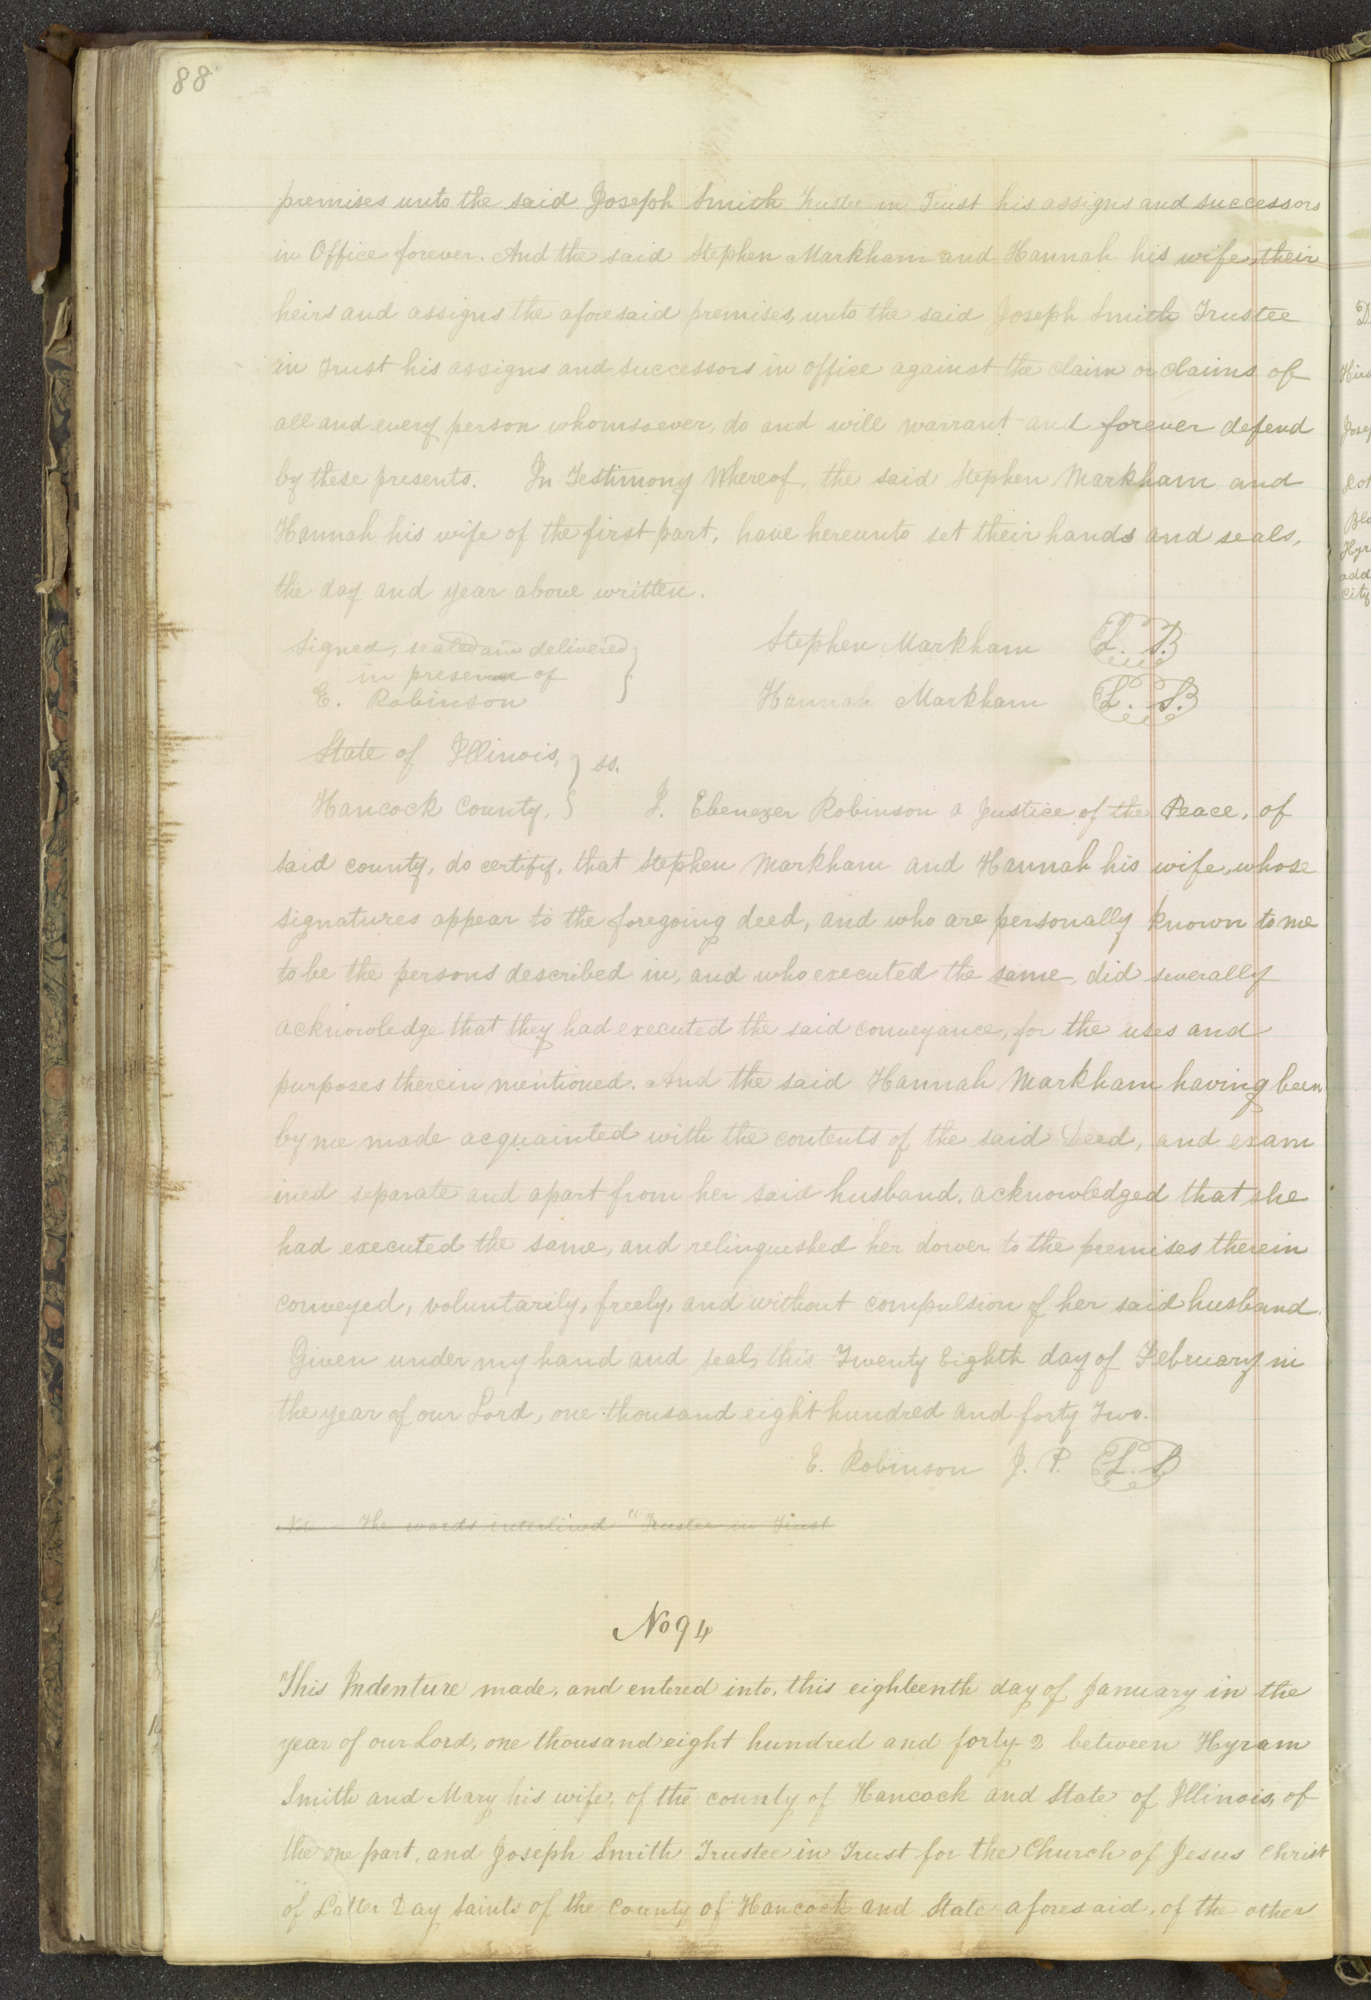 88
premises unto the said Joseph Smith Trustee in Trust his assigns and successors
in Office forever. And the said Stephen Markham and Hannah his wife, their
heirs and assigns the aforesaid premises, unto the said Joseph Smith Trustee
in Trust his assigns and successors in office against the claim or claims of
all and every person whomsoever, do and will warrant and forever defend
by these presents. In Testimony Whereof, the said Stephen Markham and
Hannah his wife of the first part, have hereunto set their hands and seals,
the day and year above written.
Signed, sealed and delivered
in presence of
E. Robinson
Stephen Markham L. S.
Hannah Markham L. S.
State of Illinois, } ss.
Hancock County, } I. Ebenezer Robinson a Justice of the Peace, of
said county, do certify, that Stephen Markham and Hannah his wife, whose
signatures appear to the foregoing deed, and who are personally known to me
to be the persons described in, and who executed the same, did severally
acknowledge that they had executed the said conveyance, for the uses and
purposes therein mentioned. And the said Hannah Markham having been
by me made acquainted with the contents of the said Deed, and exam
ined separate and apart from her said husband, acknowledged that she
had executed the same, and relinquished her dower to the premises therein
conveyed, voluntarily, freely, and without compulsion of her said husband.
Given under my hand and seal, this Twenty Eighth day of February in
the year of our Lord, one thousand eight hundred and forty Two.
E. Robinson J. P. L. S
Note - The words interlined "Trustee in Trust
No 94
This Indenture made, and entered into, this eighteenth day of January in the
year of our Lord, one thousand eight hundred and forty 2 between Hyram
Smith and Mary his wife, of the county of Hancock and State of Illinois, of
the one part, and Joseph Smith Trustee in Trust for the Church of Jesus Christ
of Latter Day Saints of the County of Hancock and State aforesaid, of the other